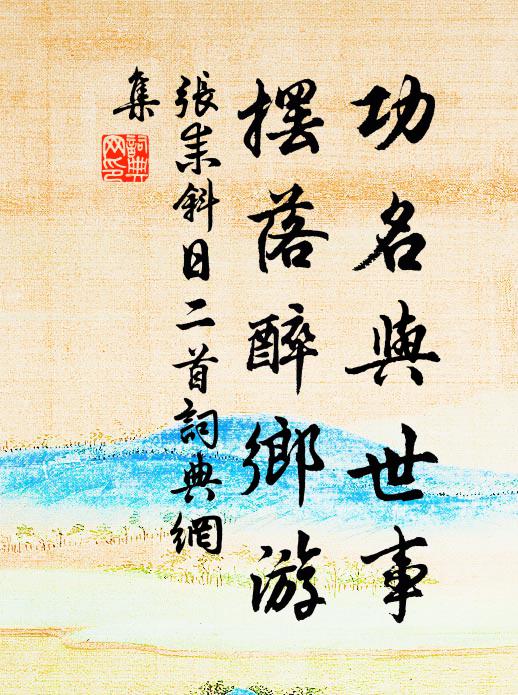 功名與世事
擺落醉鄉游
張耒斜日二首詞典網
集
詞典
网印